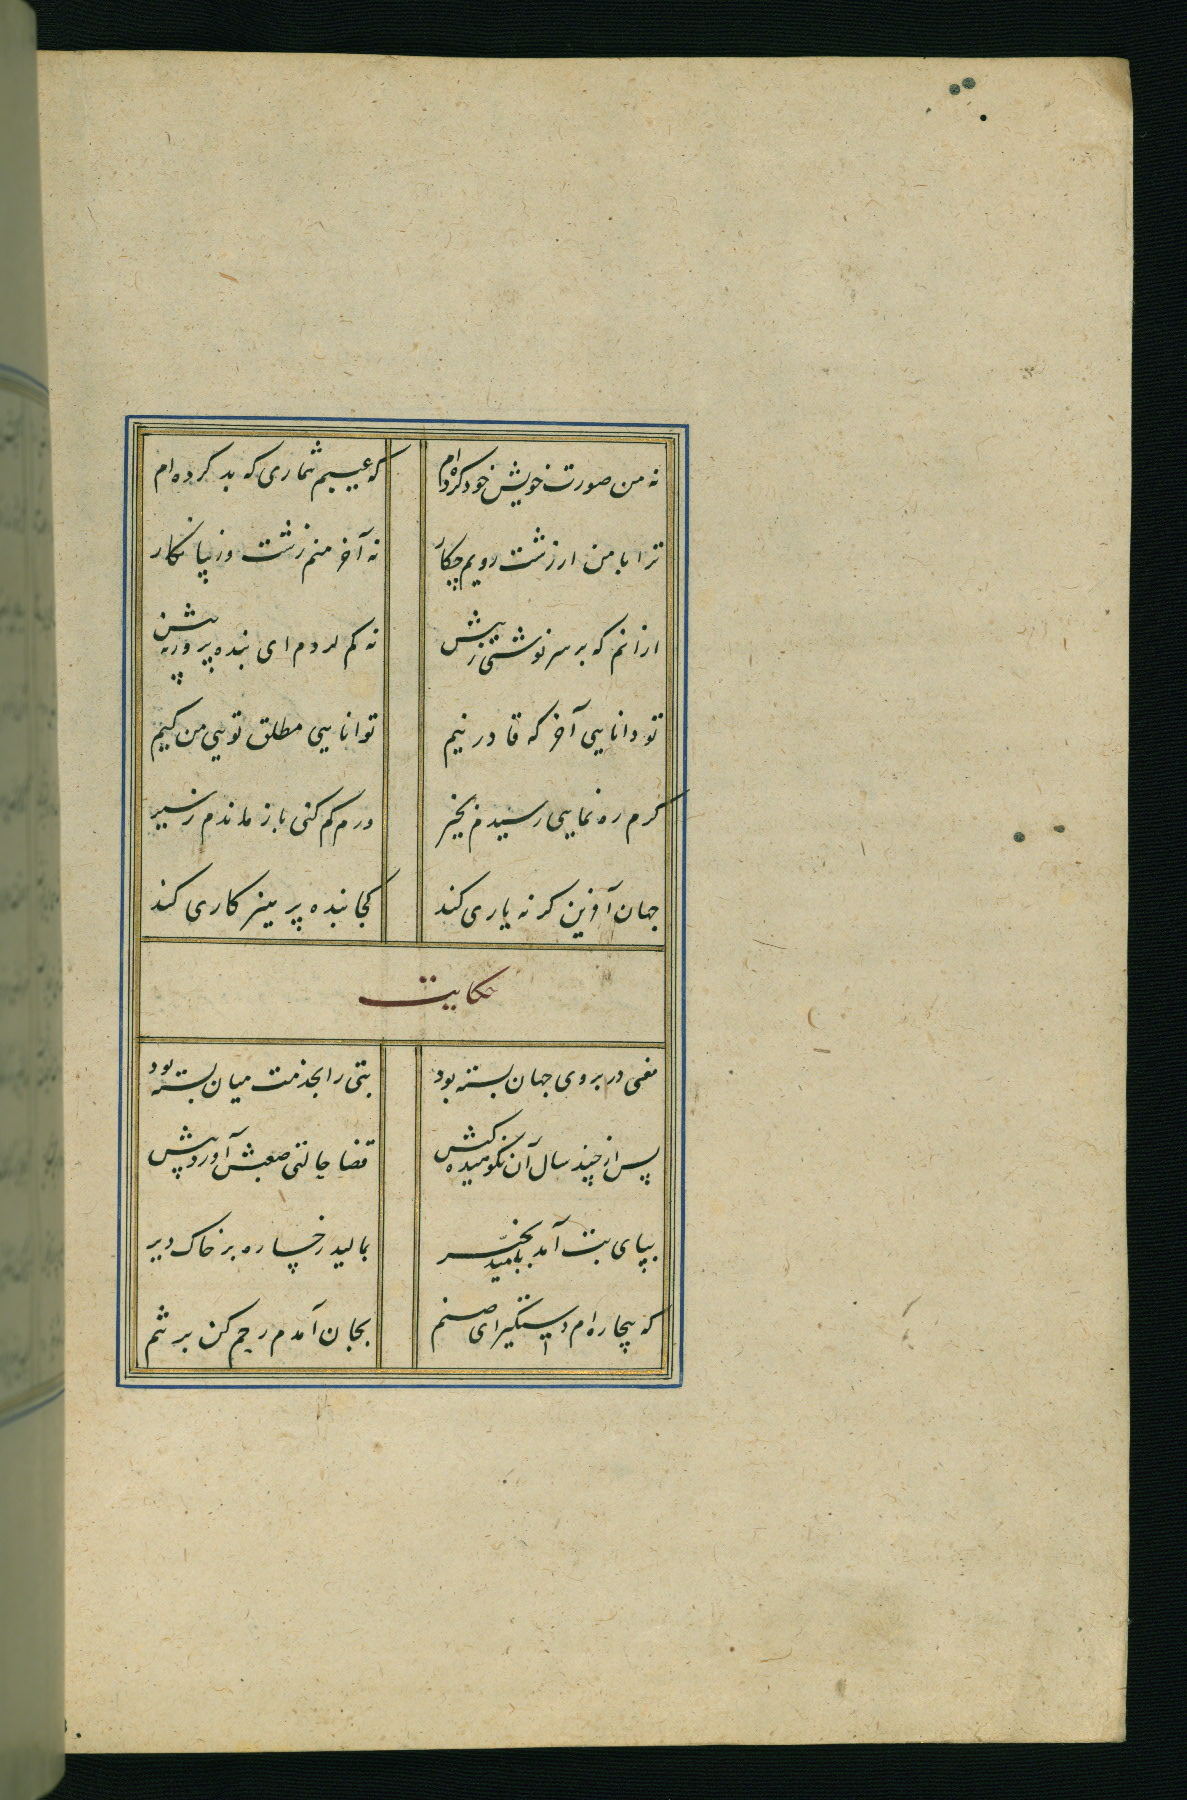 نه من صورت خویش خود کرده‌ام که عیبم شماری که بد کرده‌ام
ترا با من ار زشت رویم چکار نه آخر منم زشت و زیبا نکار
ازانم که بر سر نوشتی ز پیش نه کم کردم ای بنده پرور نه بیش
تو دانایی آخر که قادر نیم توانایی مطلق تویی من کیم
کرم ره نمایی رسیدم بخیر ورم کم کنی باز ماندم ز سیر
جهان آفرین کر نه یاری کند کجا بنده پرهیزکاری کند
حکایت
مغی در بروی جهان بسته بود بتی را بخدمت میان بسته بود
پس از چند سال آن نکوهیده کیش قضا حالتی صعبش آورد پیش
بپای بت آمد بامید خیر بمالید رخساره بر خاک دیر
که بیچاره‌ام دستکیر ای صنم بجان آمدم رحم کن بر تنم